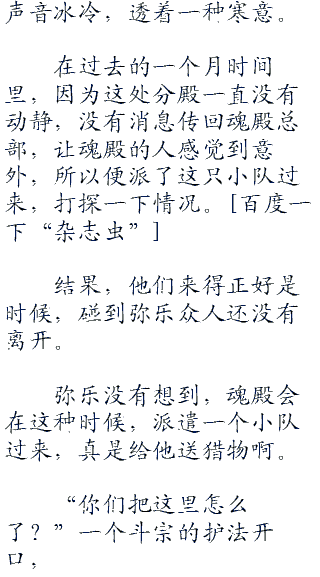 声音冰冷，透着一种寒意。
在过去的一个月时间
里，因为这处分殿一直没有
动静，没有消息传回魂殿总
部，让魂殿的人感觉到意
外，所以便派了这只小队过
来，打探一下情况。[百度一
下“杂志虫”]
结果，他们来得正好是
时候，碰到弥乐众人还没有
离开。
弥乐没有想到，魂殿会
在这种时候，派遣一个小队
过来，真是给他送猎物啊。
“你们把这里怎么
了？”一个斗宗的护法开
口，